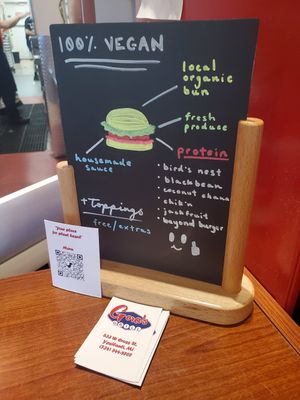 100% VEGAN
local
organic
bun
fresh
produce
protein
housemade
sauce
• bird's nest
• blackbean
• coconut chana
• chik'n
• jackfruit
• beyond burger
+ toppings
free/extras
"Your place
for plant based"
Menu